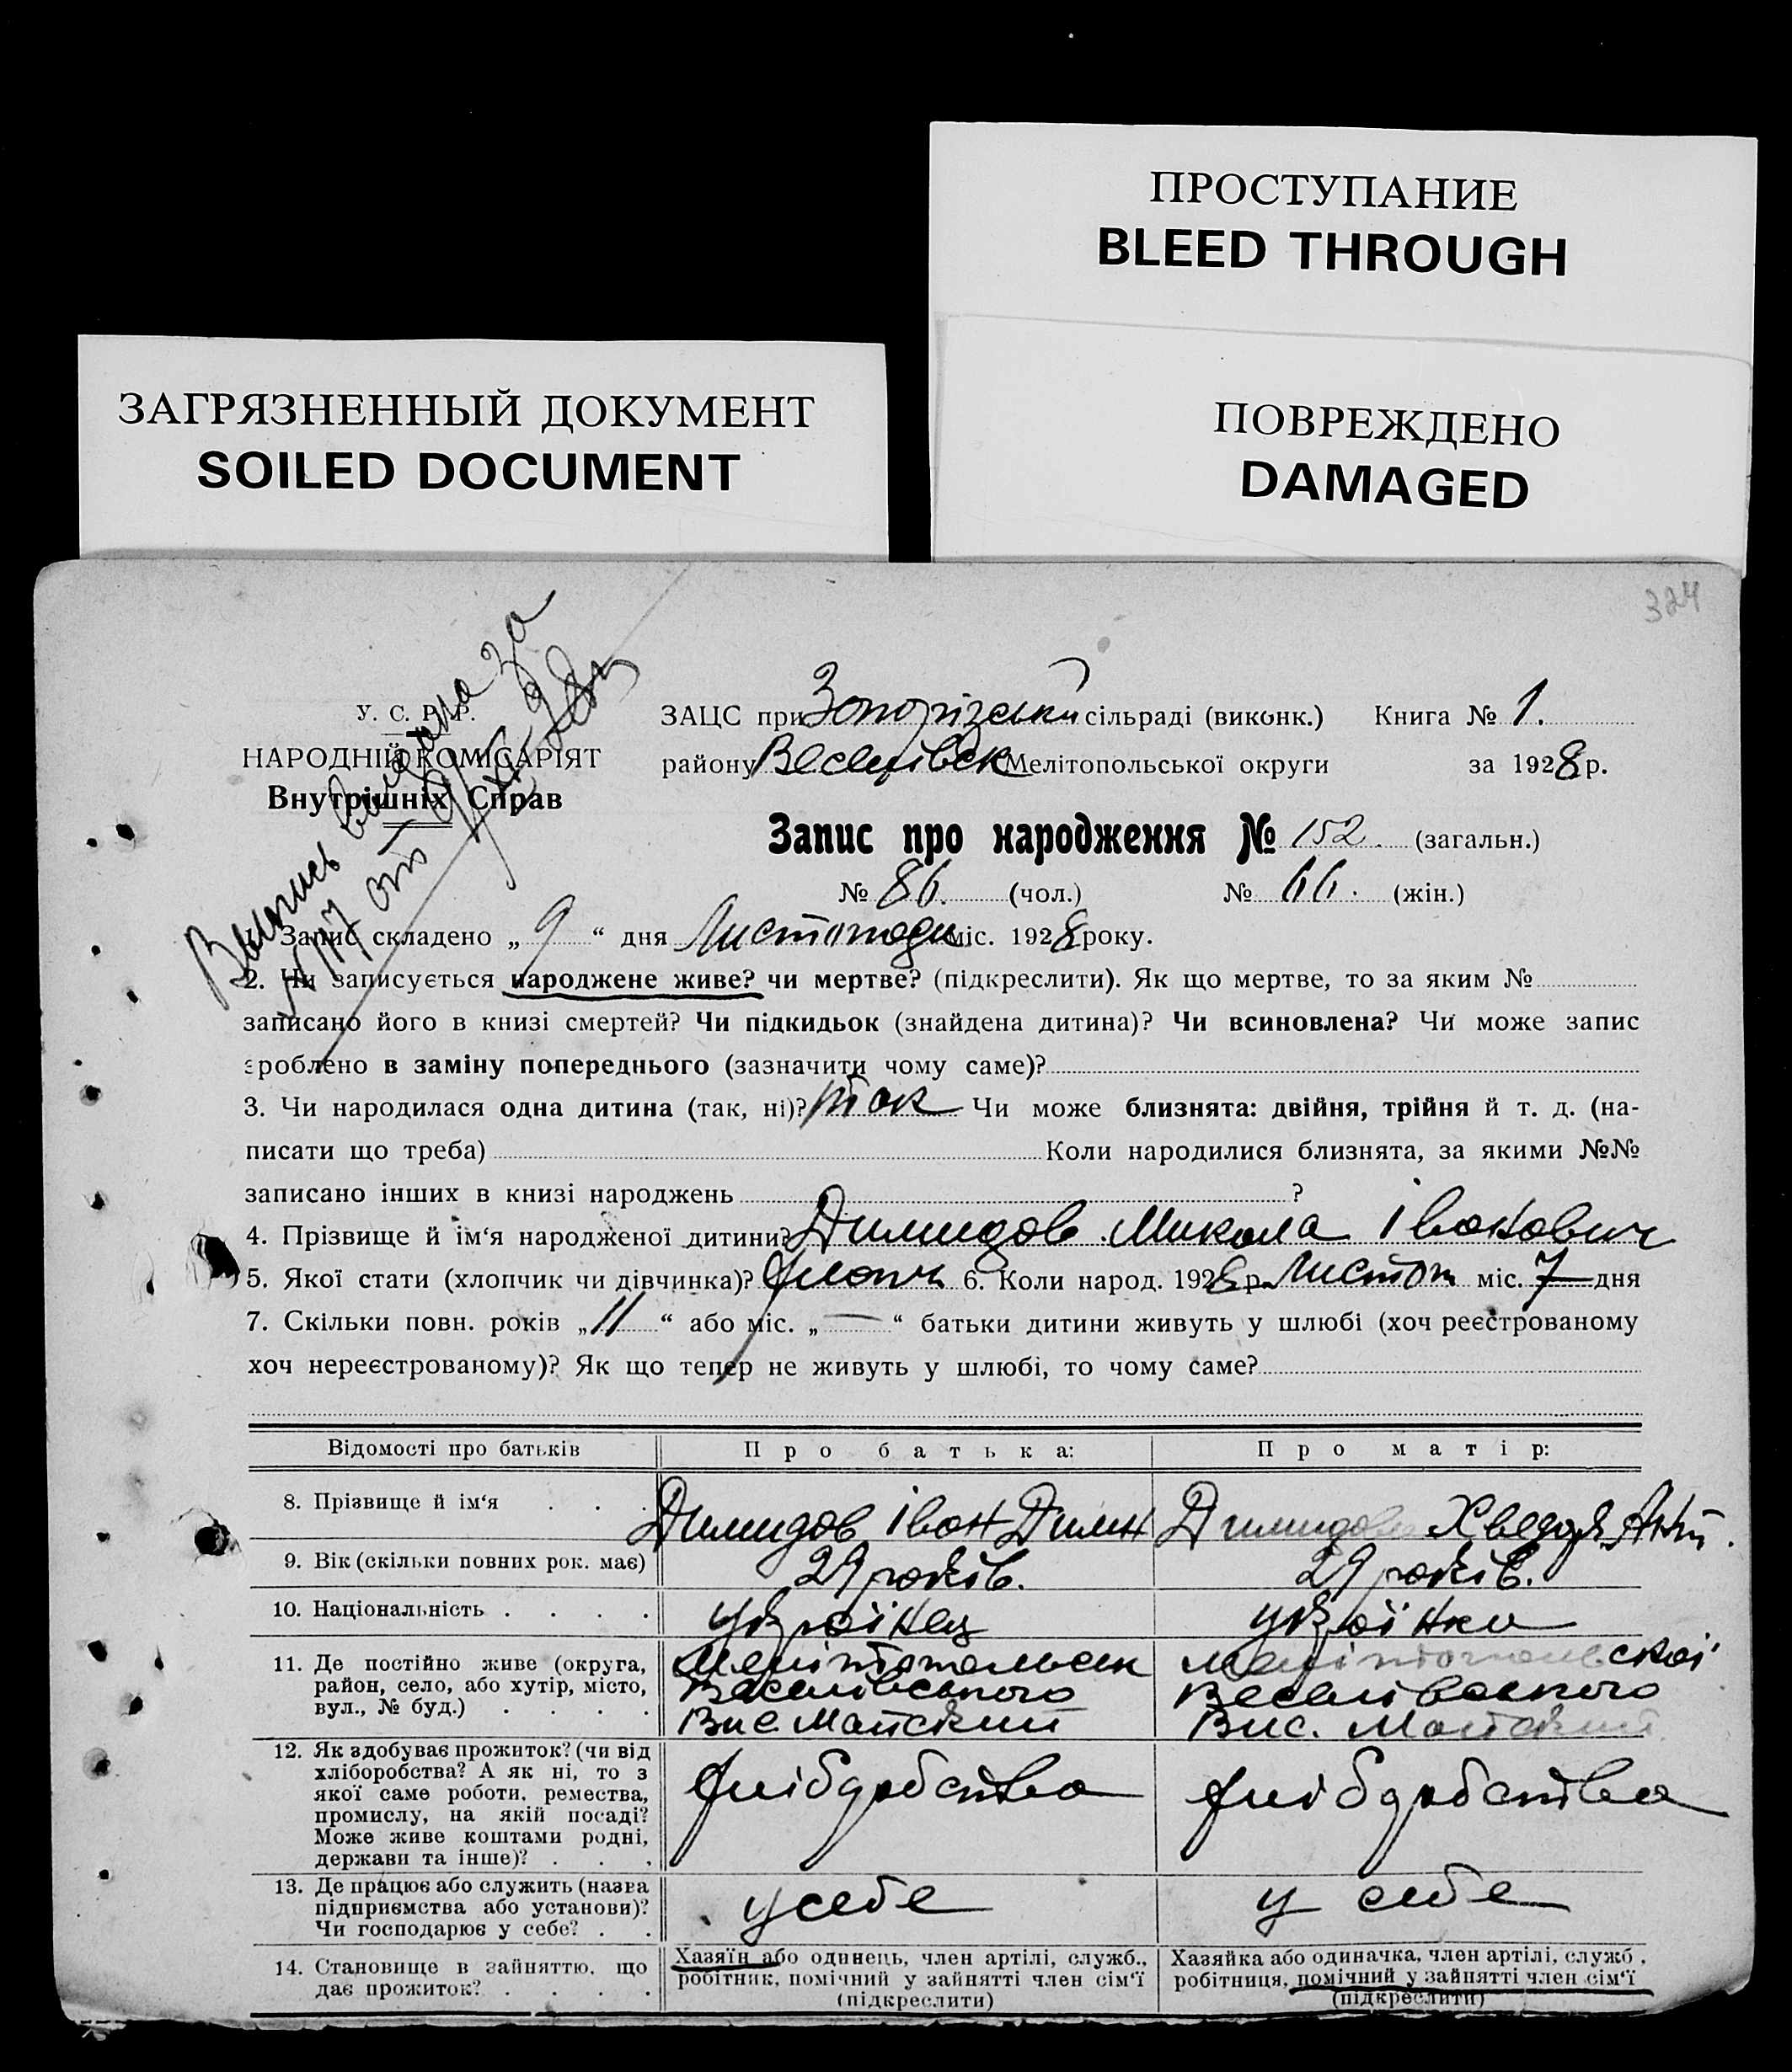 ПРОСТУПАНИЕ
BLEED THROUGH
ЗАГРЯЗНЕННЫЙ ДОКУМЕНТ
SOILED DOCUMENT
ПОВРЕЖДЕНО
DAMAGED
324
Выпись выдана за
№ 117 от
У. С. Р. Р.
НАРОДНІЙ КОМІСАРІЯТ
Внутрішніх Справ
ЗАЦС при Запорізський сільраді (виконк.) Книга № 1.
району Веселівськ Мелітопольської округи за 1928 р.
Запис про народження № 152. (загальн.)
№ 86. (чол.) № 66. (жін.)
1. Запис складено „ 9 “ дня Листопада міс. 1928 року.
2. Чи записується народжене живе? чи мертве? (підкреслити). Як що мертве, то за яким №
записано його в книзі смертей? Чи підкидьок (знайдена дитина)? Чи всиновлена? Чи може запис
зроблено в заміну попереднього (зазначити чому саме)?
3. Чи народилася одна дитина (так, ні)? так Чи може близнята: двійня, трійня й т. д. (на-
писати що треба) Коли народилися близнята, за якими №№
записано інших в книзі народжень ?
4. Прізвище й ім‘я народженої дитини? Димидов Микола Іванович
5. Якої стати (хлопчик чи дівчинка)? хлопч 6. Коли народ. 1928 р. Листоп міс. 7 дня
7. Скільки повн. років „ 11 “ або міс. „ — “ батьки дитини живуть у шлюбі (хоч реєстрованому
хоч нереєстрованому)? Як що тепер не живуть у шлюбі, то чому саме?
Відомості про батьків Про батька: Про матір:
8. Прізвище й ім‘я Димидов Іван Димн Димидова Хведоря Ант.
9. Вік (скільки повних рок. має) 29 років. 29 років.
10. Національність українец українка
11. Де постійно живе (округа, Мелітопольськ Мелітопольської
район, село, або хутір, місто, Веселівського Веселівського
вул., № буд.) Вис. Майський Вис. Майський
12. Як здобуває прожиток? (чи від
хліборобства? А як ні, то з
якої саме роботи, ремества, хліборобства хліборобства
промислу, на якій посаді?
Може живе коштами родні,
держави та інше)?
13. Де працює або служить (назва
підприємства або установи)? у себе у себе
Чи господарює у себе?
14. Становище в зайняттю, що Хазяїн або одинець, член артілі, служб., Хазяйка або одиначка, член артілі, служб.,
дає прожиток? робітник, помічний у зайнятті член сім‘ї робітниця, помічний у зайнятті член сім‘ї
(підкреслити) (підкреслити)